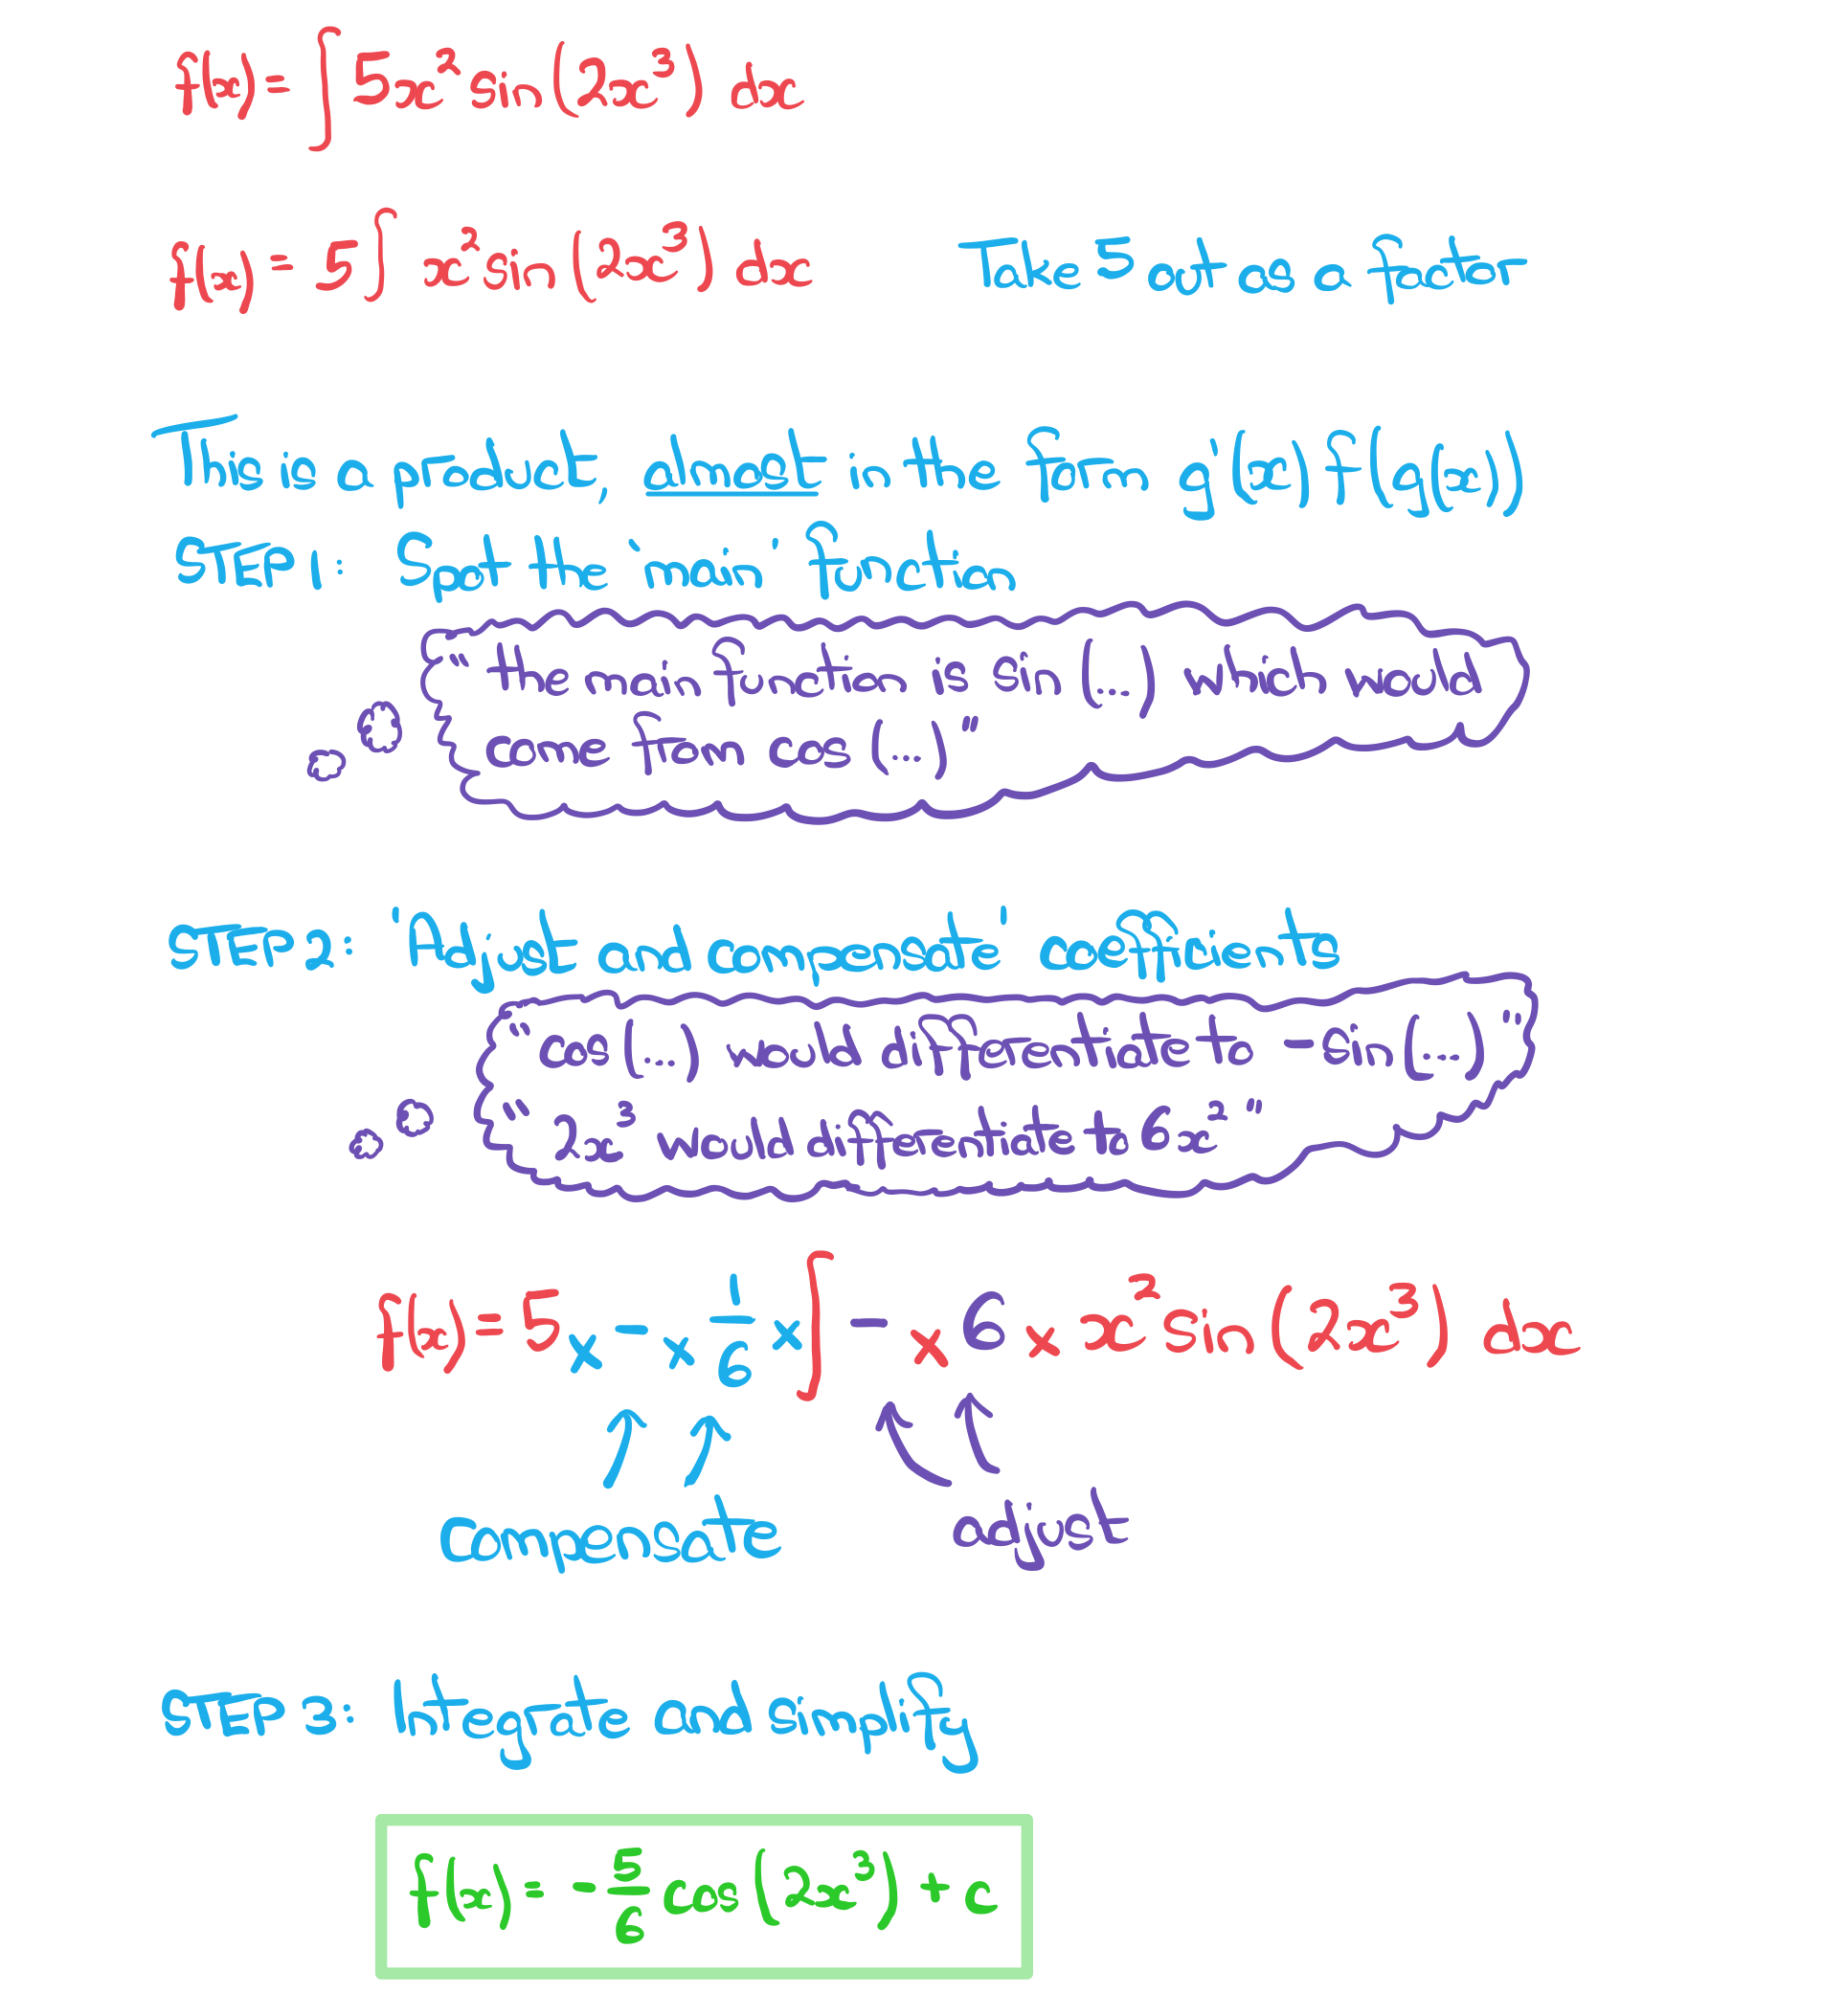 f(x) = ∫ 5x² sin(2x³) dx
f(x) = 5 ∫ x² sin(2x³) dx Take 5 out as a factor
This is a product, almost in the form g'(x) f(g(x))
STEP 1: Spot the 'main' function
"the main function is sin(...) which would
come from cos(...)"
STEP 2: 'Adjust and compensate' coefficients
"cos(...) would differentiate to -sin(...)"
"2x³ would differentiate to 6x²"
f(x) = 5 × - × 1/6 × ∫ - × 6 × x² sin(2x³) dx
compensate adjust
STEP 3: Integrate and simplify
f(x) = -5/6 cos(2x³) + c